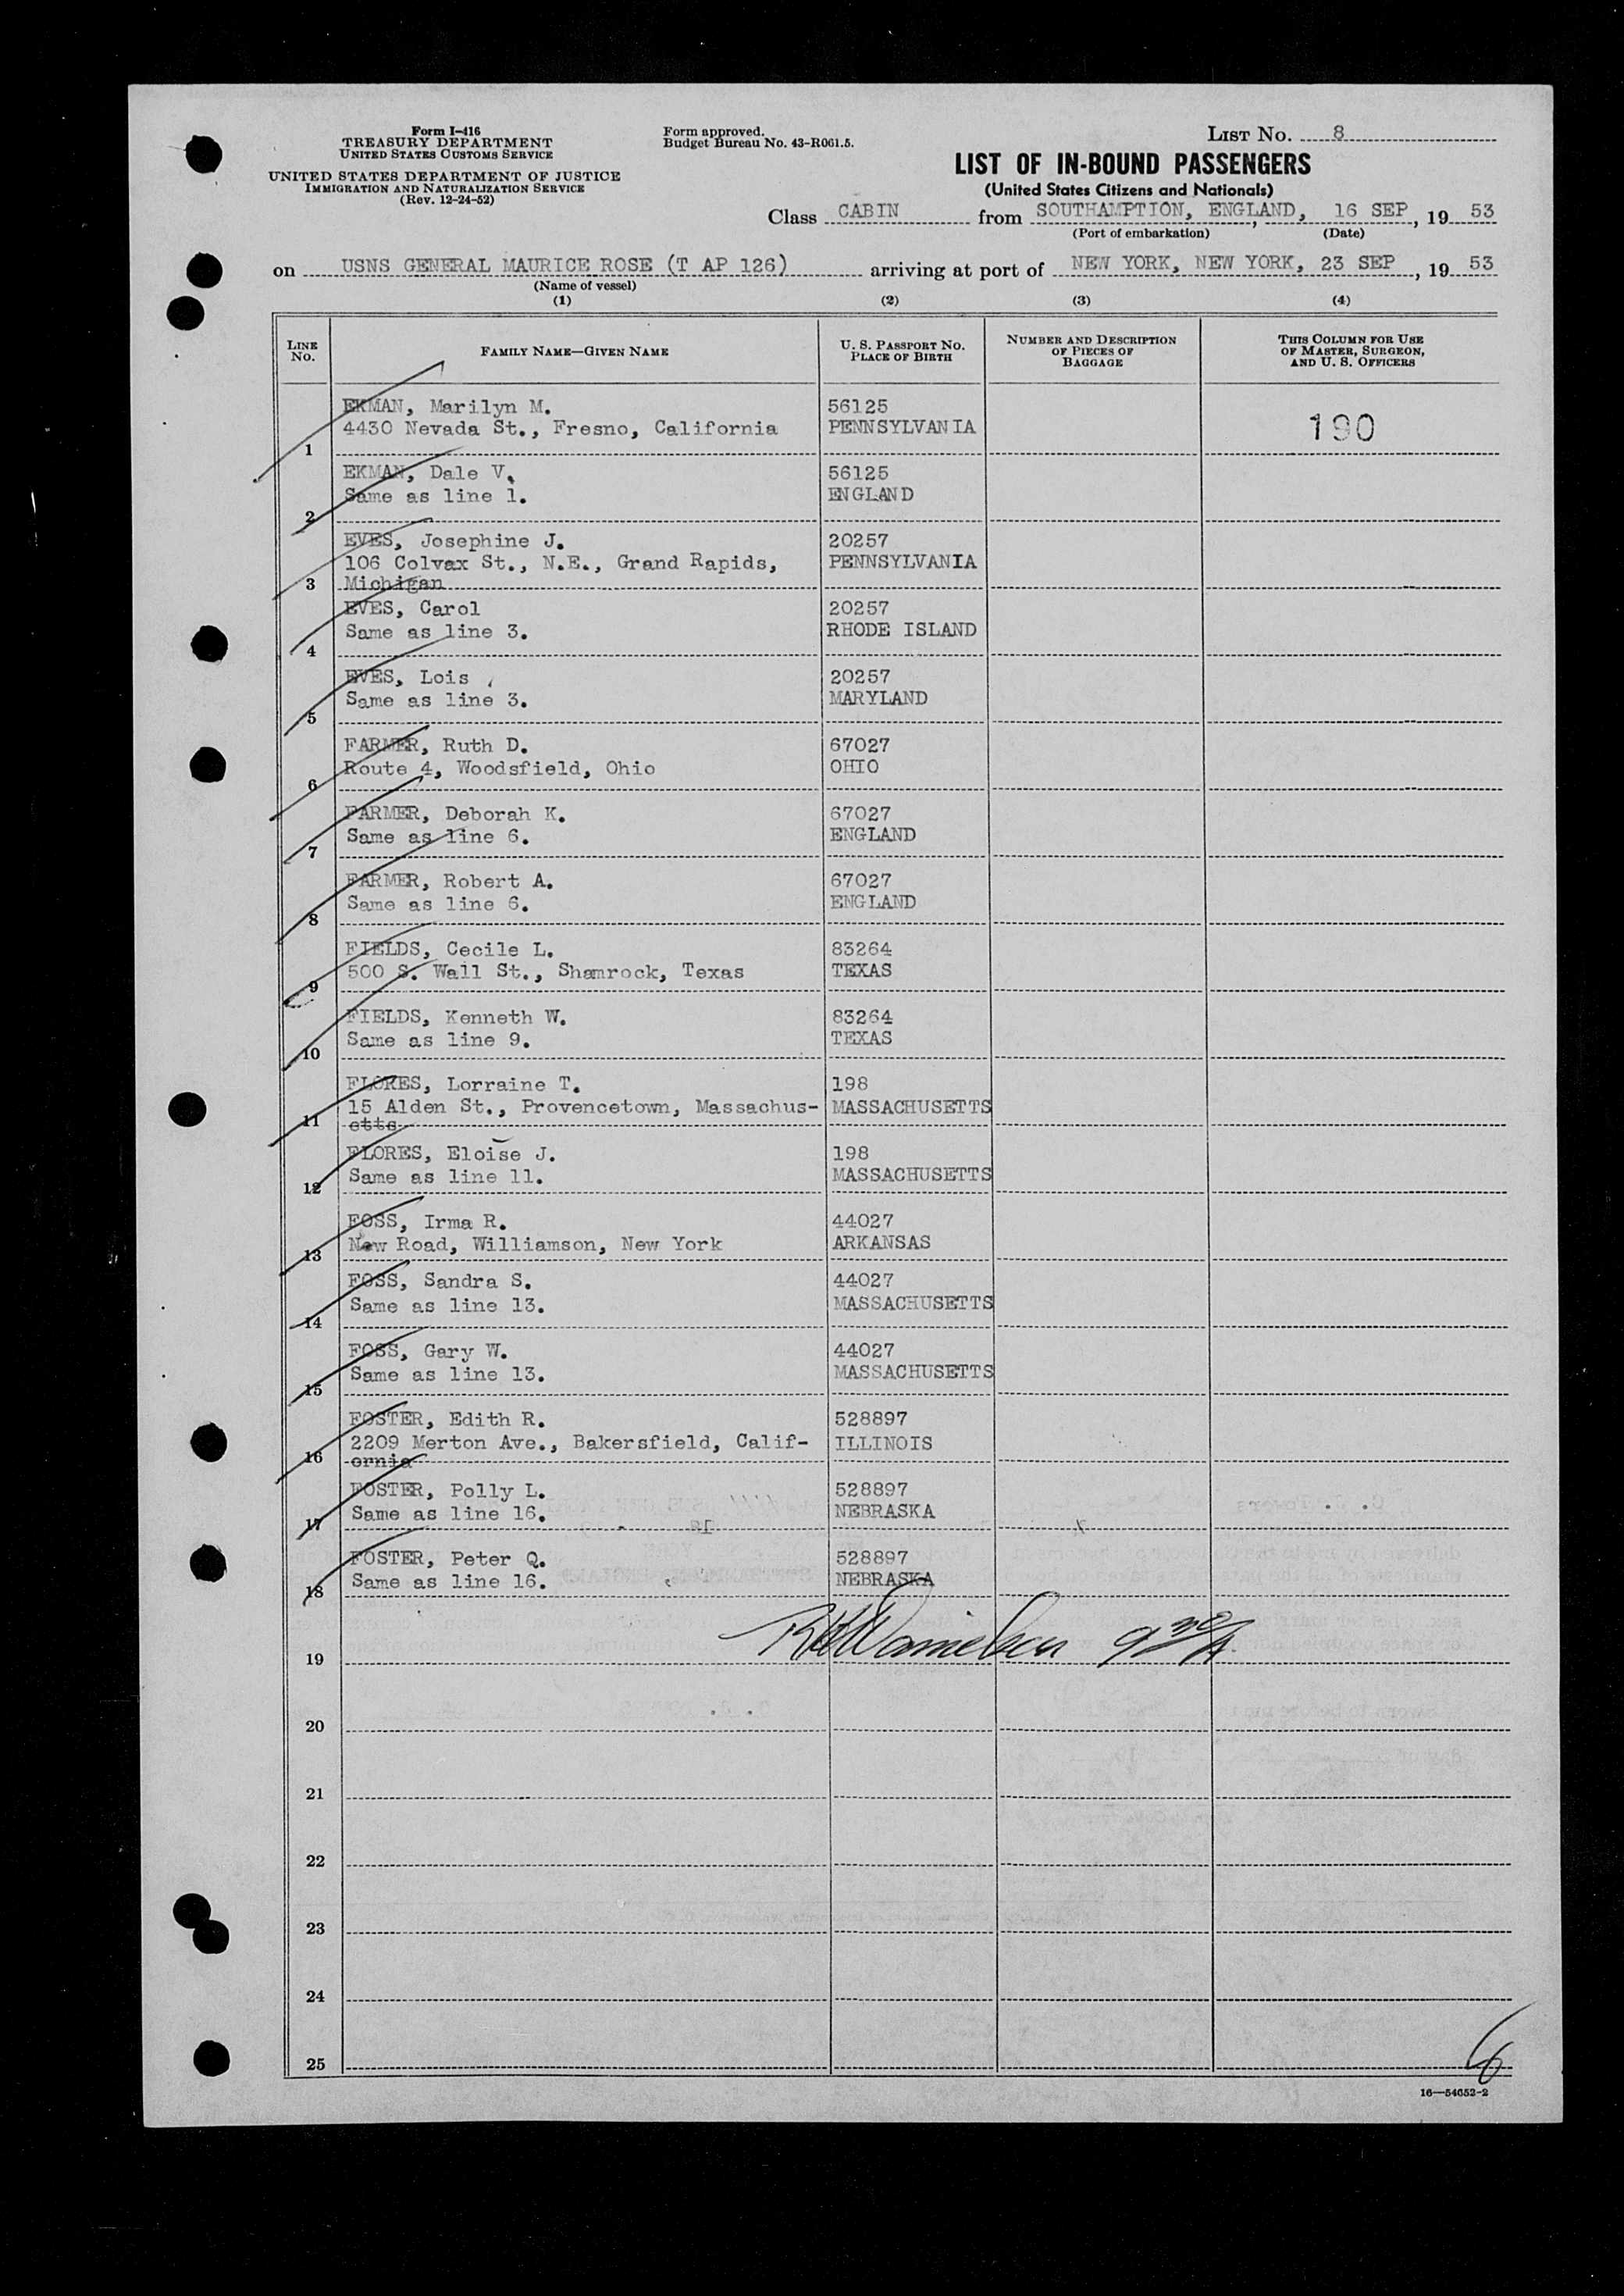 Form I-416
TREASURY DEPARTMENT
UNITED STATES CUSTOMS SERVICE
UNITED STATES DEPARTMENT OF JUSTICE
IMMIGRATION AND NATURALIZATION SERVICE
(Rev. 12-24-52)
Form approved.
Budget Bureau No. 43-R061.5.
LIST No. 8
LIST OF IN-BOUND PASSENGERS
(United States Citizens and Nationals)
Class CABIN from SOUTHAMPTION, ENGLAND, 16 SEP, 19 53
(Port of embarkation) (Date)
on USNS GENERAL MAURICE ROSE (T AP 126) arriving at port of NEW YORK, NEW YORK, 23 SEP, 19 53
(Name of vessel)
(1) (2) (3) (4)
LINE No. FAMILY NAME—GIVEN NAME U. S. PASSPORT No. PLACE OF BIRTH NUMBER AND DESCRIPTION OF PIECES OF BAGGAGE THIS COLUMN FOR USE OF MASTER, SURGEON, AND U. S. OFFICERS
EKMAN, Marilyn M. 56125
4430 Nevada St., Fresno, California PENNSYLVANIA 190
1
EKMAN, Dale V. 56125
Same as line 1. ENGLAND
2
EVES, Josephine J. 20257
106 Colvax St., N.E., Grand Rapids, PENNSYLVANIA
3 Michigan
EVES, Carol 20257
Same as line 3. RHODE ISLAND
4
EVES, Lois 20257
Same as line 3. MARYLAND
5
FARMER, Ruth D. 67027
Route 4, Woodsfield, Ohio OHIO
6
FARMER, Deborah K. 67027
Same as line 6. ENGLAND
7
FARMER, Robert A. 67027
Same as line 6. ENGLAND
8
FIELDS, Cecile L. 83264
500 S. Wall St., Shamrock, Texas TEXAS
9
FIELDS, Kenneth W. 83264
Same as line 9. TEXAS
10
FLORES, Lorraine T. 198
15 Alden St., Provencetown, Massachus- MASSACHUSETTS
11 etts
FLORES, Eloise J. 198
Same as line 11. MASSACHUSETTS
12
FOSS, Irma R. 44027
New Road, Williamson, New York ARKANSAS
13
FOSS, Sandra S. 44027
Same as line 13. MASSACHUSETTS
14
FOSS, Gary W. 44027
Same as line 13. MASSACHUSETTS
15
FOSTER, Edith R. 528897
2209 Merton Ave., Bakersfield, Calif- ILLINOIS
16 ornia
FOSTER, Polly L. 528897
Same as line 16. NEBRASKA
17
FOSTER, Peter Q. 528897
Same as line 16. NEBRASKA
18
19
20
21
22
23
24
25
6
16—54652-2